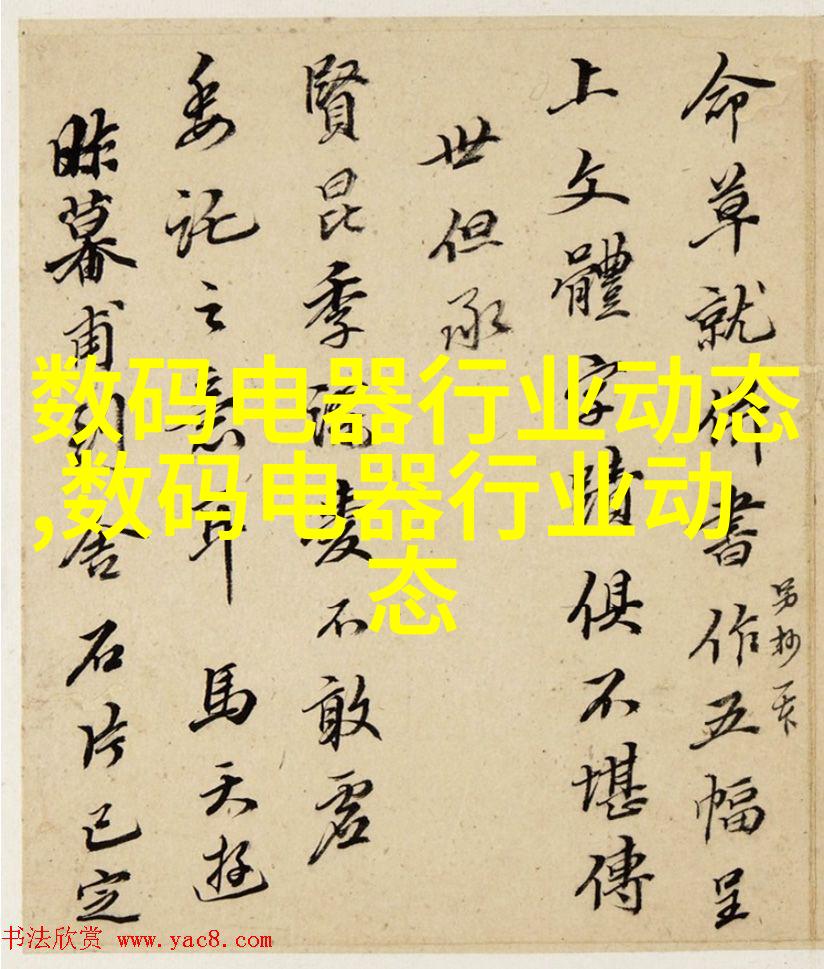 命草就書作五幅呈
另抄
上文體字蹟俱不堪傳
世但承
賢昆季不敢虛
委託之意耳 馬天游
昨暮甫到舍石片已定
数码电器行业动态
,数码电器行业动
态
书法欣赏 www.yac8.com